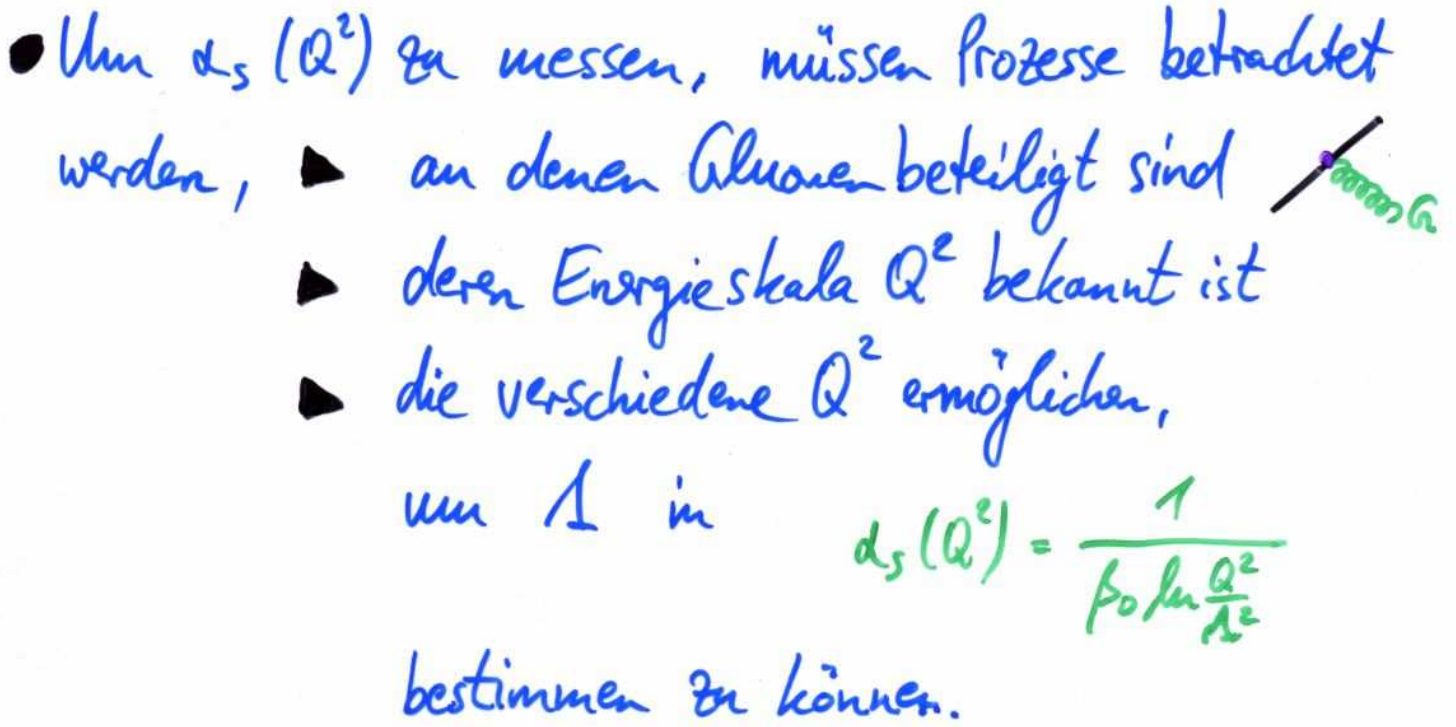 • Um αs (Q²) zu messen, müssen Prozesse betrachtet
werden, ▶ an denen Gluonen beteiligt sind G
▶ deren Energieskala Q² bekannt ist
▶ die verschiedene Q² ermöglichen,
um Λ in αs(Q²) = 1 / (β₀ ln Q²/Λ²)
bestimmen zu können.